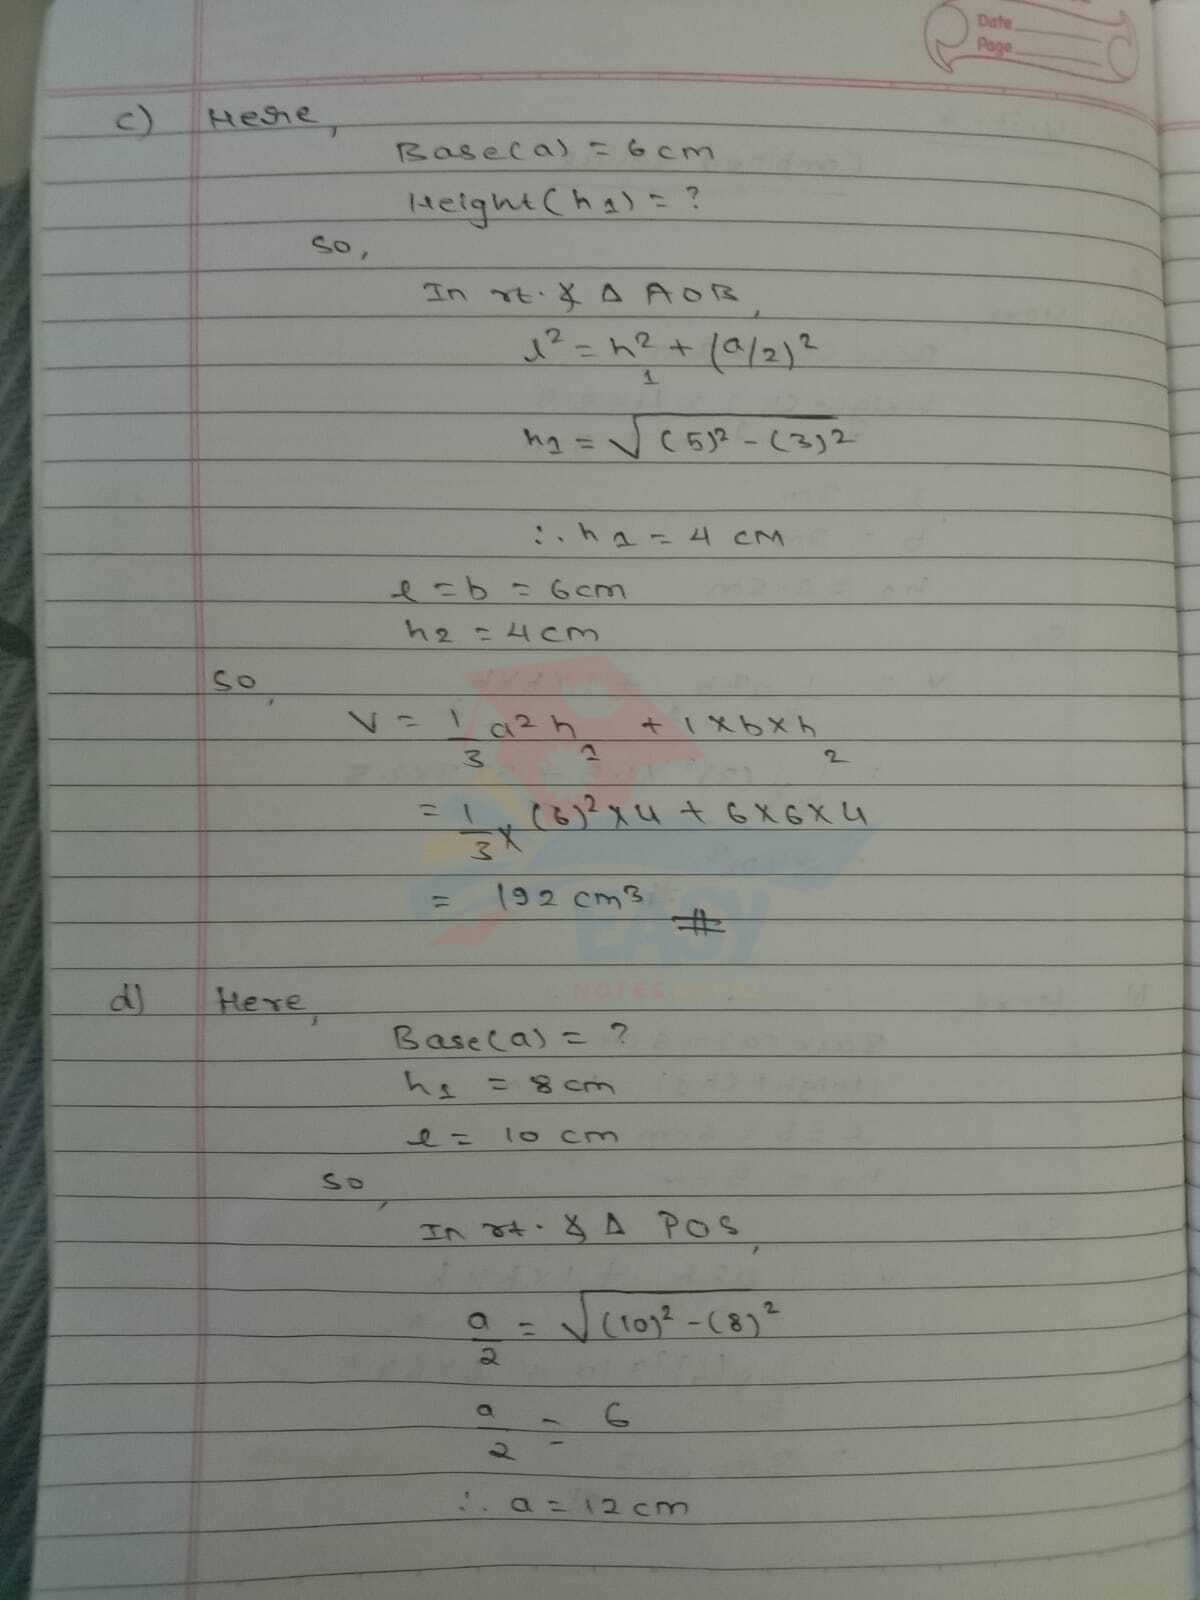 Date
Page
c) Here,
Base(a) = 6cm
Height(h1) = ?
So,
In rt. ∡ Δ AOB,
l² = h1² + (a/2)²
h1 = √(5)² - (3)²
∴ h1 = 4 cm
l = b = 6cm
h2 = 4cm
So,
V = 1/3 a² h1 + l × b × h2
= 1/3 × (6)² × 4 + 6 × 6 × 4
= 192 cm³ #
EASY
NOTES
d) Here,
Base(a) = ?
h1 = 8 cm
l = 10 cm
So,
In rt. ∡ Δ POS,
a/2 = √(10)² - (8)²
a/2 = 6
∴ a = 12 cm